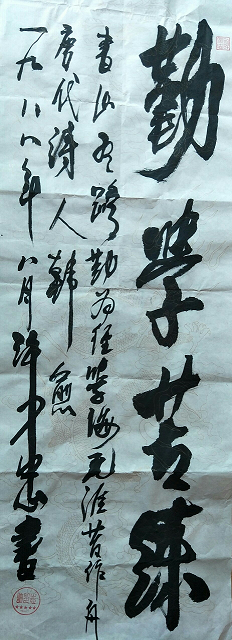 勤学苦练
书山有路勤为径学海无涯苦作舟
唐代诗人韩愈
一九八八年八月许忠书